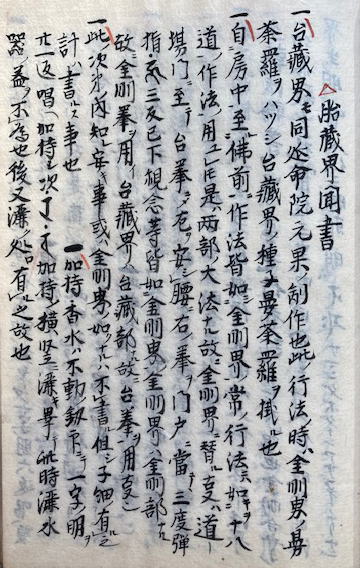 △胎蔵界聞書
一台蔵界モ同延命院元杲ノ制作也此行法ノ時ハ金剛界ノ曼
荼羅ヲハツシ台蔵界ノ種子曼荼羅ヲ掛ル也
一自房中至仏前作法皆如金剛界常ノ行法ニハ如十八
道ノ作法ヲ用ユ是ハ両部ノ大法ナル故ニ金剛界ニ替ル支ハ道
場門ニ至テ台拳ヲ左ニ安シ腰ニ右ノ拳ヲ門戸ニ当三度弾
指・三反已下観念等皆如金剛界金剛界ハ金剛部ナル
故ニ金剛拳ヲ用イ台蔵界ハ台蔵部ナル故ニ台拳ヲ用支也
一此次第内知安キ事或ハ金剛界ノ如クナルハ不書但シ子細有之
計ハ書ル事也　一加持香水ハ不動釼印ニテ一字ノ明ヲ
廿一返唱加持シ次了テ加持シ横竪ニ灑畢テ此時灑水
器ノ蓋ヲ不為也後又灑ク処有之故也